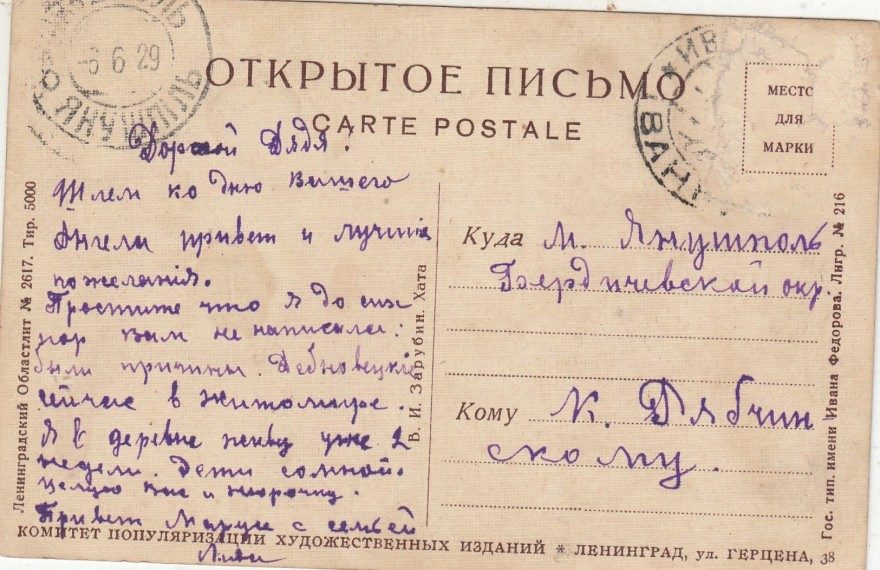 -6 6 29
ЯНУШПІЛЬ
ИВ
ИВАН
ОТКРЫТОЕ ПИСЬМО
CARTE POSTALE
МЕСТО
ДЛЯ
МАРКИ
Дорогой Дядя!
Шлем ко дню Вашего
Ангела привет и лучшие
пожеланія.
Простите что я до сих
пор вам не написала:
были причины.
сейчас в житомире.
Я в деревне живу уже 2
недели. Дети со мной.
целую вас и
Привет Марусе с семьей
Лида
Куда м. Янушполь
Бердичевской окр.
Кому К. Дябчин
скому.
Ленинградский Областлит № 2617. Тир. 5000
В. И. Зарубин. Хата
Гос. тип. имени Ивана Федорова. Лнгр. № 216
КОМИТЕТ ПОПУЛЯРИЗАЦИИ ХУДОЖЕСТВЕННЫХ ИЗДАНИЙ * ЛЕНИНГРАД, ул. ГЕРЦЕНА, 38